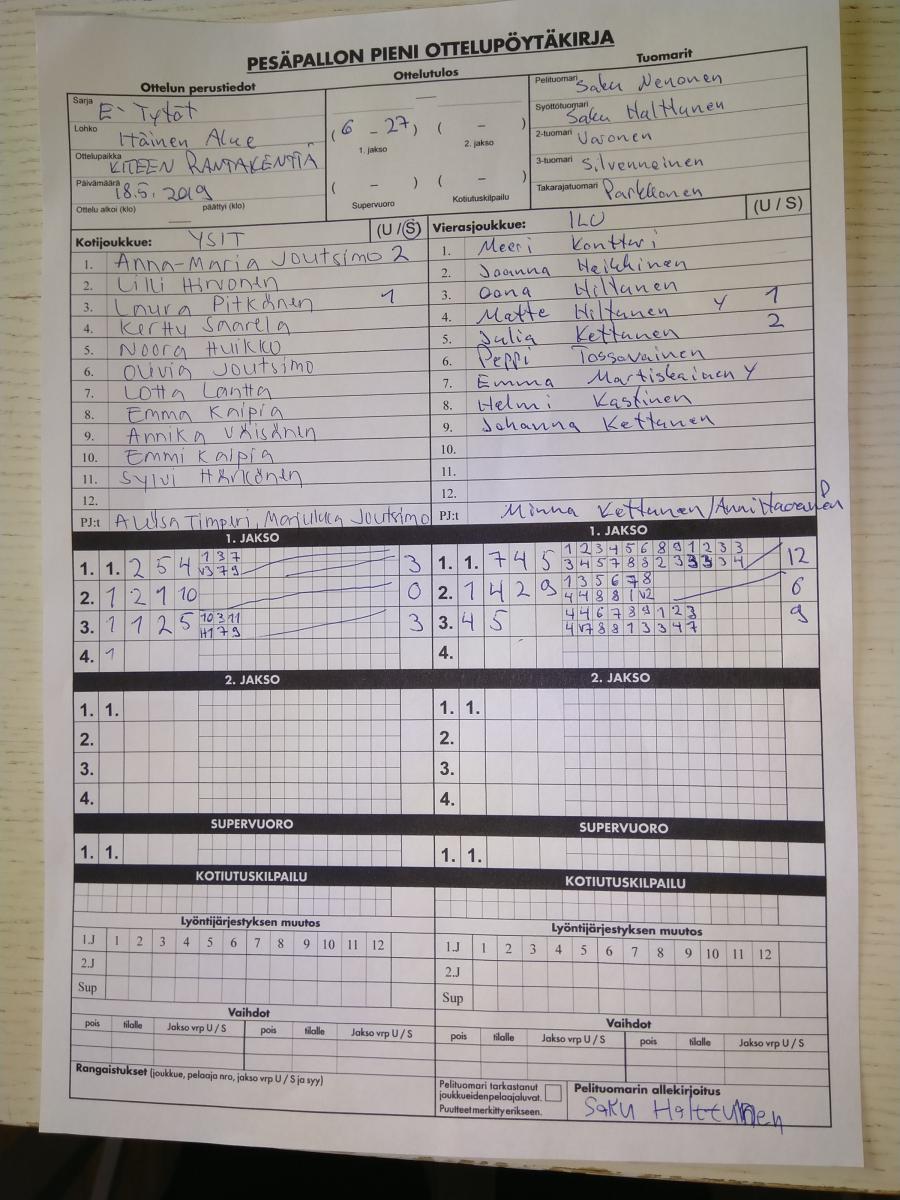 PESÄPALLON PIENI OTTELUPÖYTÄKIRJA
Ottelun perustiedot
Sarja E- Tytöt
Lohko Itäinen Alue
Ottelupaikka KITEEN RANTAKENTTÄ
Päivämäärä 18.5. 2019
Ottelu alkoi (klo) päättyi (klo)
Ottelutulos
(6 - 27) ( - )
1. jakso 2. jakso
( - ) ( - )
Supervuoro Kotiutuskilpailu
Tuomarit
Pelituomari Saku Nenonen
Syöttötuomari Saku Halttunen
2-tuomari Varonen
3-tuomari Silvennoinen
Takarajatuomari Parkkonen
Kotijoukkue: YSIT (U / S)
1. Anna-Maria Joutsimo 2
2. Lilli Hirvonen
3. Laura Pitkänen 1
4. Kerttu Smarela
5. Noora Huikko
6. Olivia Joutsimo
7. Lotta Lantta
8. Emma Kaipia
9. Annika Väisänen
10. Emmi Kaipia
11. Sylvi Härkönen
12.
PJ:t Timperi, Joutsimo
Vierasjoukkue: ILO (U / S)
1. Meeri Konttri
2. Joanna Heikkinen
3. Oona Hiltunen 1
4. Matte Hiltunen Y
5. Julia Kettunen 2
6. Peppi Tossavainen
7. Emma Martiskainen Y
8. Helmi Kaskinen
9. Johanna Kettunen
10.
11.
12.
PJ:t Minna Kettunen/Anni
1. JAKSO
1. 1. 2 5 4 1 3 7 3
V3 7 9
2. 1 2 9 10 0
3. 1 1 2 5 10 3 11 3
H1 7 9
4. 1
1. JAKSO
1. 1. 7 4 5 1 2 3 4 5 6 8 9 1 2 3 3 12
3 4 5 7 8 8 2 3 3 3 3 4
2. 1 4 2 9 1 3 5 6 7 8 6
4 4 8 8 1 V2
3. 4 5 4 4 6 7 8 9 1 2 3 9
4 V7 8 8 1 3 3 4 7
4.
2. JAKSO
1. 1.
2.
3.
4.
2. JAKSO
1. 1.
2.
3.
4.
SUPERVUORO
1. 1.
SUPERVUORO
1. 1.
KOTIUTUSKILPAILU
KOTIUTUSKILPAILU
Lyöntijärjestyksen muutos
1.J 1 2 3 4 5 6 7 8 9 10 11 12
2.J
Sup
Lyöntijärjestyksen muutos
1.J 1 2 3 4 5 6 7 8 9 10 11 12
2.J
Sup
Vaihdot
pois tilalle Jakso vrp U / S pois tilalle Jakso vrp U / S
Vaihdot
pois tilalle Jakso vrp U / S pois tilalle Jakso vrp U / S
Rangaistukset (joukkue, pelaaja nro, jakso vrp U / S ja syy)
Pelituomari tarkastanut
joukkueidenpelaajaluvat.
Puutteet merkitty erikseen.
Pelituomarin allekirjoitus
Saku Halttunen